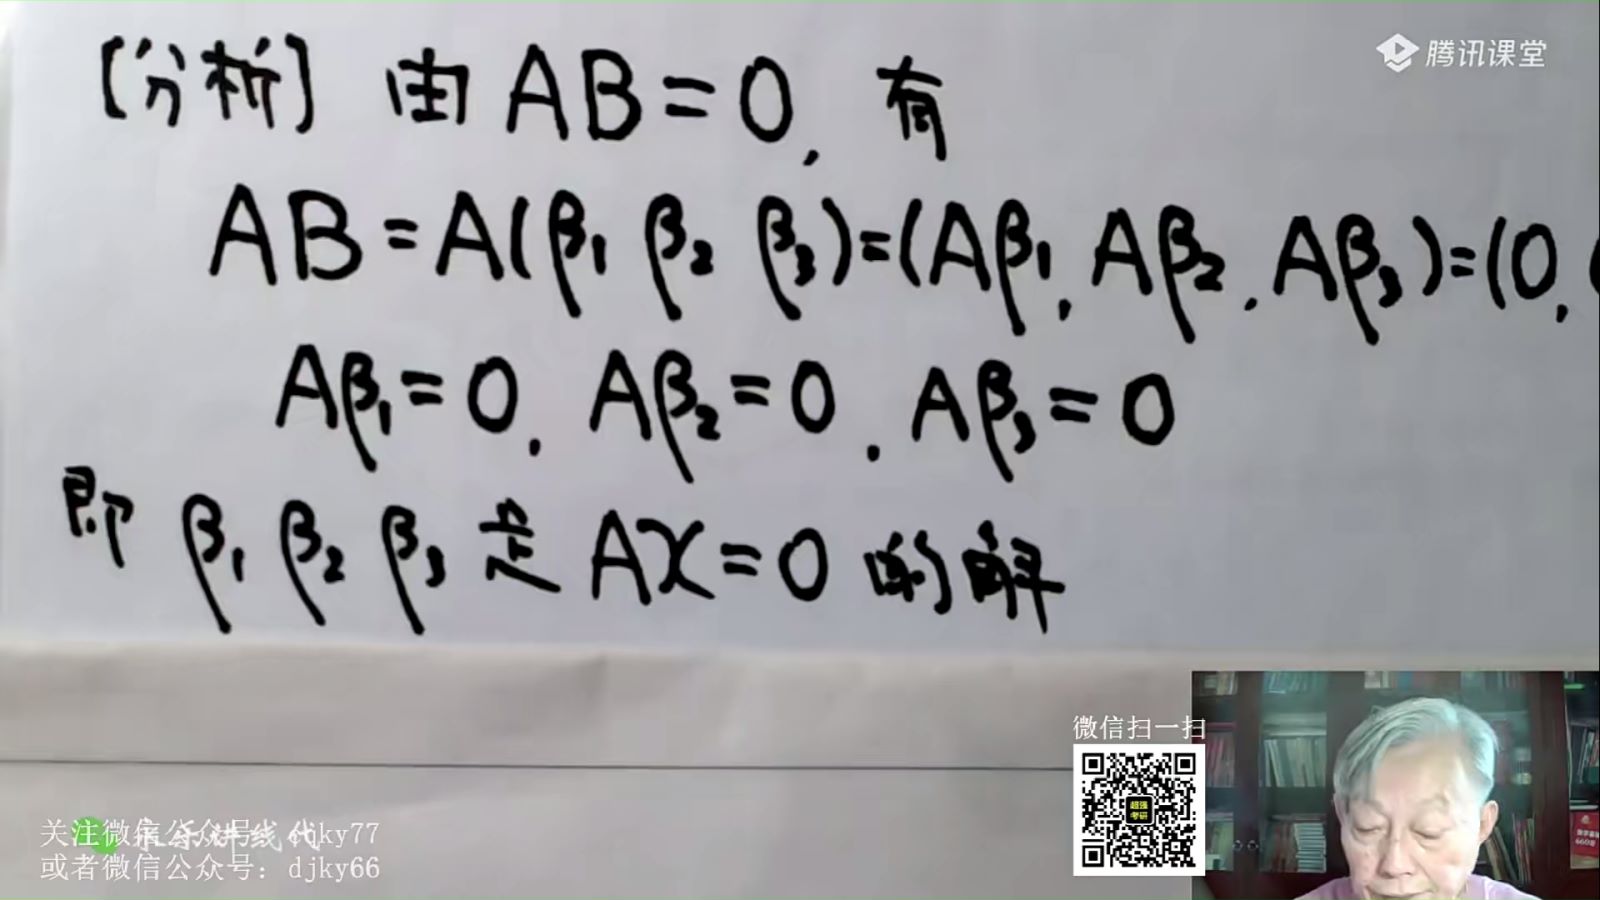 腾讯课堂
[分析] 由 AB=0, 有
AB=A(β₁ β₂ β₃)=(Aβ₁, Aβ₂, Aβ₃)=(0,
Aβ₁=0, Aβ₂=0, Aβ₃=0
即 β₁ β₂ β₃ 是 Ax=0 的解
微信扫一扫
超强
考研
关注微信公众号: djky77
永乐讲线代
或者微信公众号: djky66